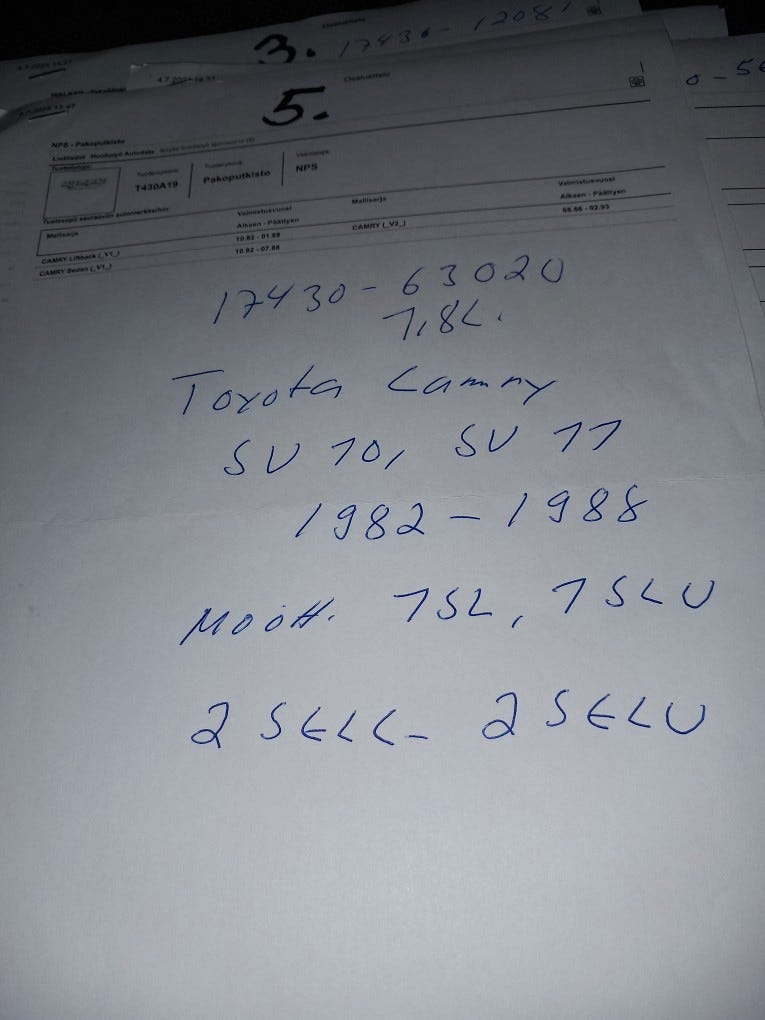 3. 17430-1208
4.7.2023
5.
Osaluettelo
NPS - Pakoputkisto
T430A19
Pakoputkisto
NPS
Mallisarja
Valmistusvuosi
Alkaen - Päättyen
Mallisarja
Valmistusvuosi
Alkaen - Päättyen
CAMRY Liftback (_V1_)
10.82 - 01.88
CAMRY (_V2_)
CAMRY Sedan (_V1_)
10.82 - 07.88
17430-63020
1,8L.
Toyota Camry
SV 10, SV 11
1982-1988
MOOtt. 1SL, 1SLU
2 SELC- 2 SELU